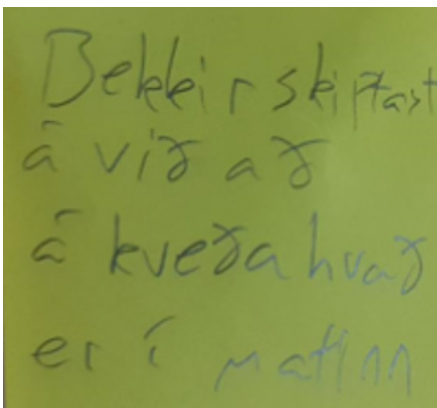 Bekkir skiptast
á við að
ákveða hvað
er í matinn